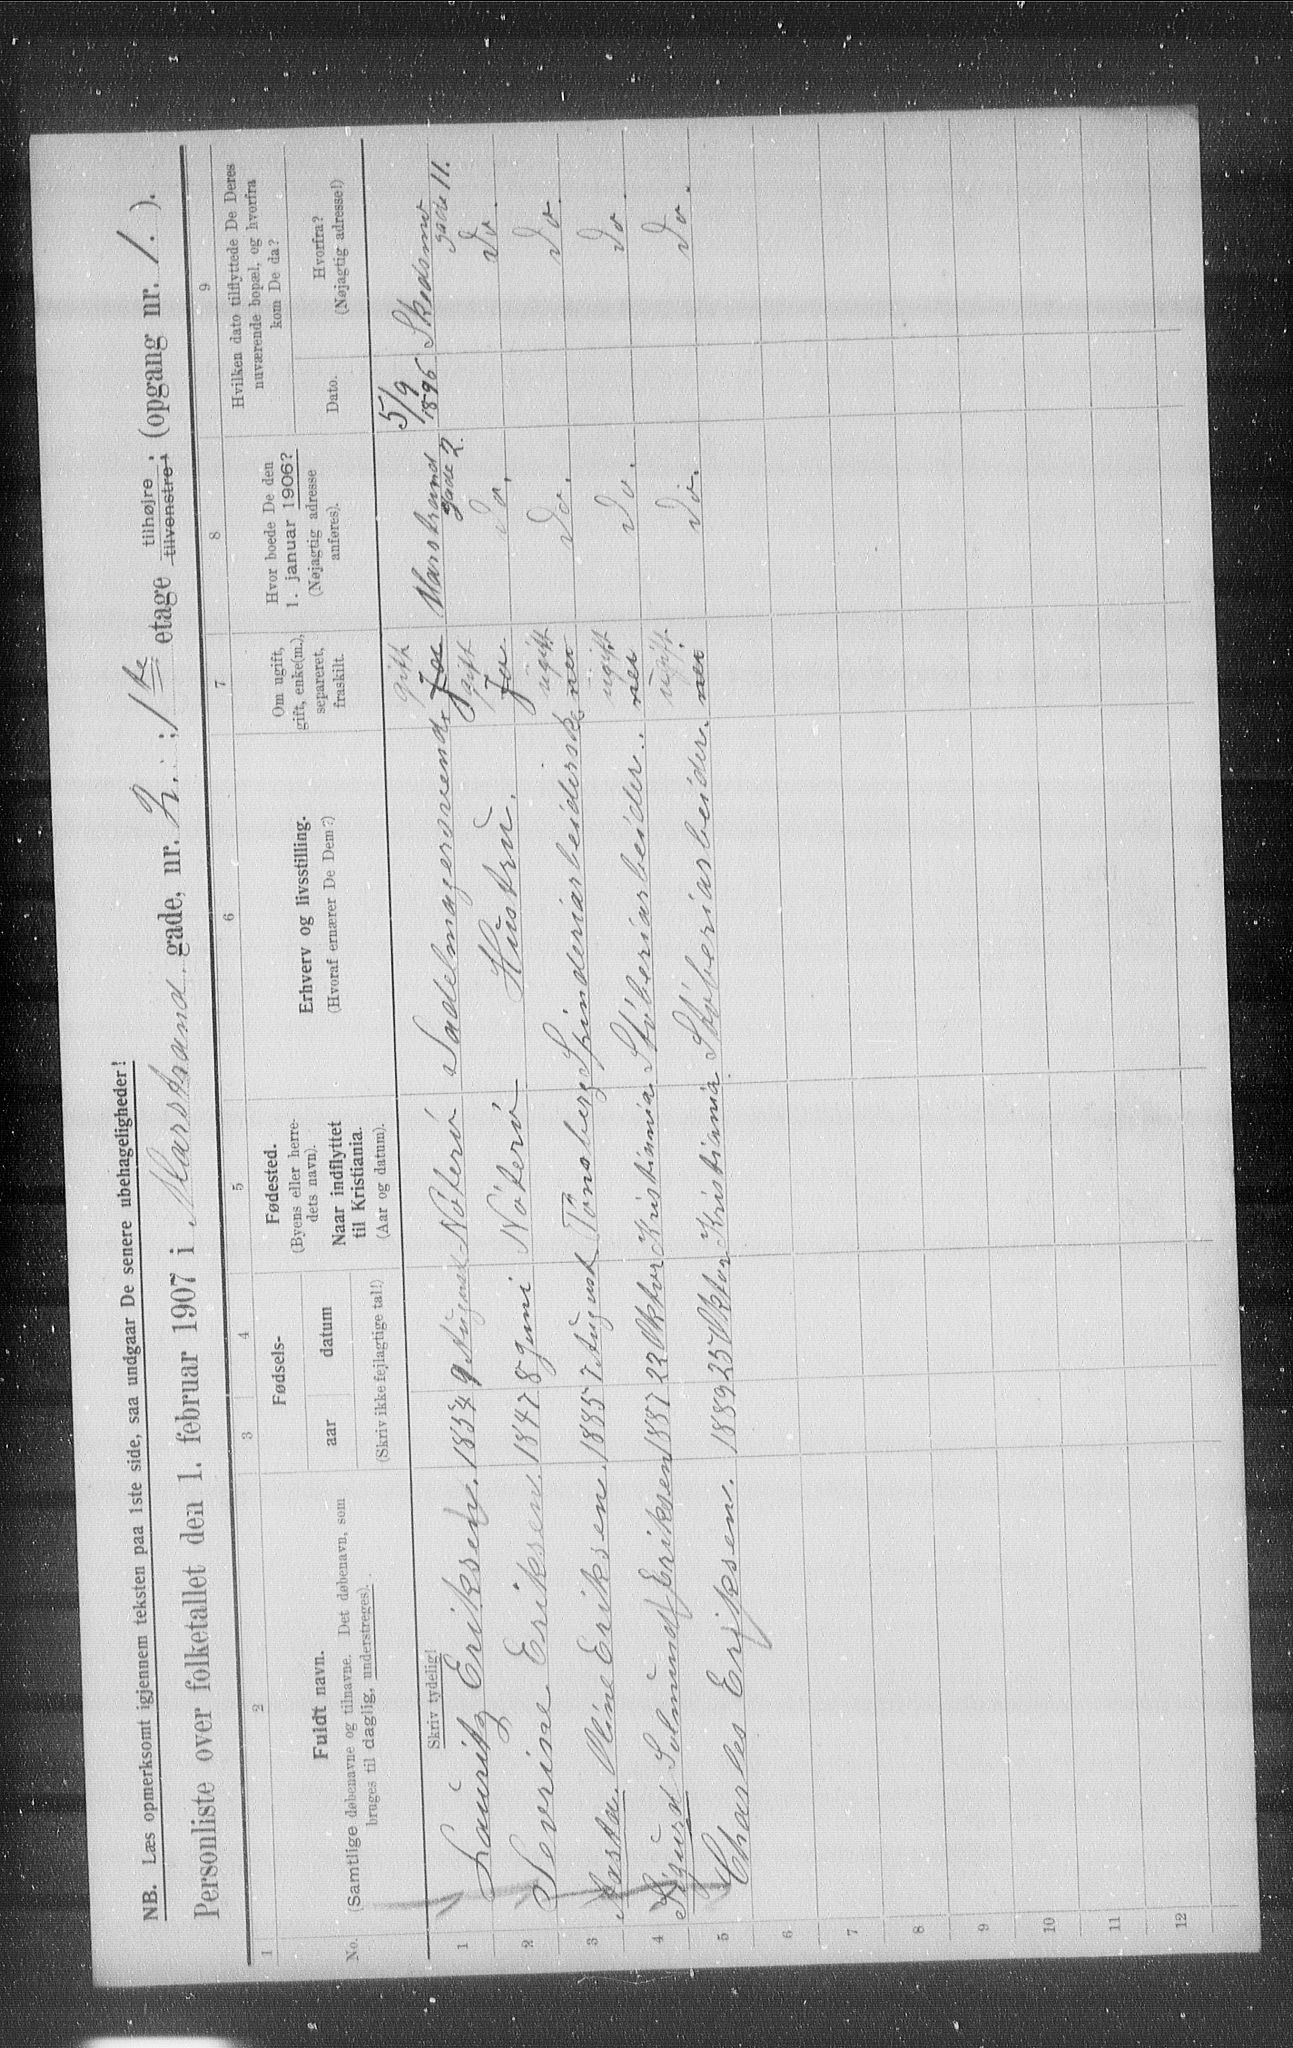 NB. Læs opmerksomt igjennem teksten paa 1ste side, saa undgaar De senere ubehageligheder!
Personliste over folketallet den 1. februar 1907 i Marstrand gade, nr. 2. ; 1ste etage tilhøjre ; tilvenstre ; (opgang nr. 1. ).
1 2 3 4 5 6 7 8 9
No.
Fuldt navn.
(Samtlige døbenavne og tilnavne. Det døbenavn, som
bruges til daglig, understreges).
Fødsels-
aar datum
(Skriv ikke fejlagtige tal!)
Fødested.
(Byens eller herre-
dets navn).
Naar indflyttet
til Kristiania.
(Aar og datum).
Erhverv og livsstilling.
(Hvoraf ernærer De Dem?)
Om ugift,
gift, enke(m.),
separeret,
fraskilt.
Hvor boede De den
1. januar 1906?
(Nøjagtig adresse
anføres).
Hvilken dato tilflyttede De Deres
nuværende bopæl, og hvorfra
kom De da?
Dato.
Hvorfra?
(Nøjagtig adresse!)
Skriv tydelig!
1 Lauritz Eriksen. 1854 9 August Nöterö Sadelmagersvend gift Ja Marstrand gade 2. 5/9 1896 Skedsmo gade 11.
2 Severine Eriksen. 1847 8 Juni Nöterö Hustru. gift Ja. Do. Do.
3 Aasta Oline Eriksen. 1885 7 August Tönsberg Spinderiarbeiderske ugift nei Do. Do.
4 Sigurd Eriksen 1887 22 Oktor Kristiania Stöberiarbeider. ugift nei Do. Do.
5 Charles Eriksen. 1889 25 Oktor Kristiania Stöberiarbeider. ugift nei Do. Do.
6
7
8
9
10
11
12